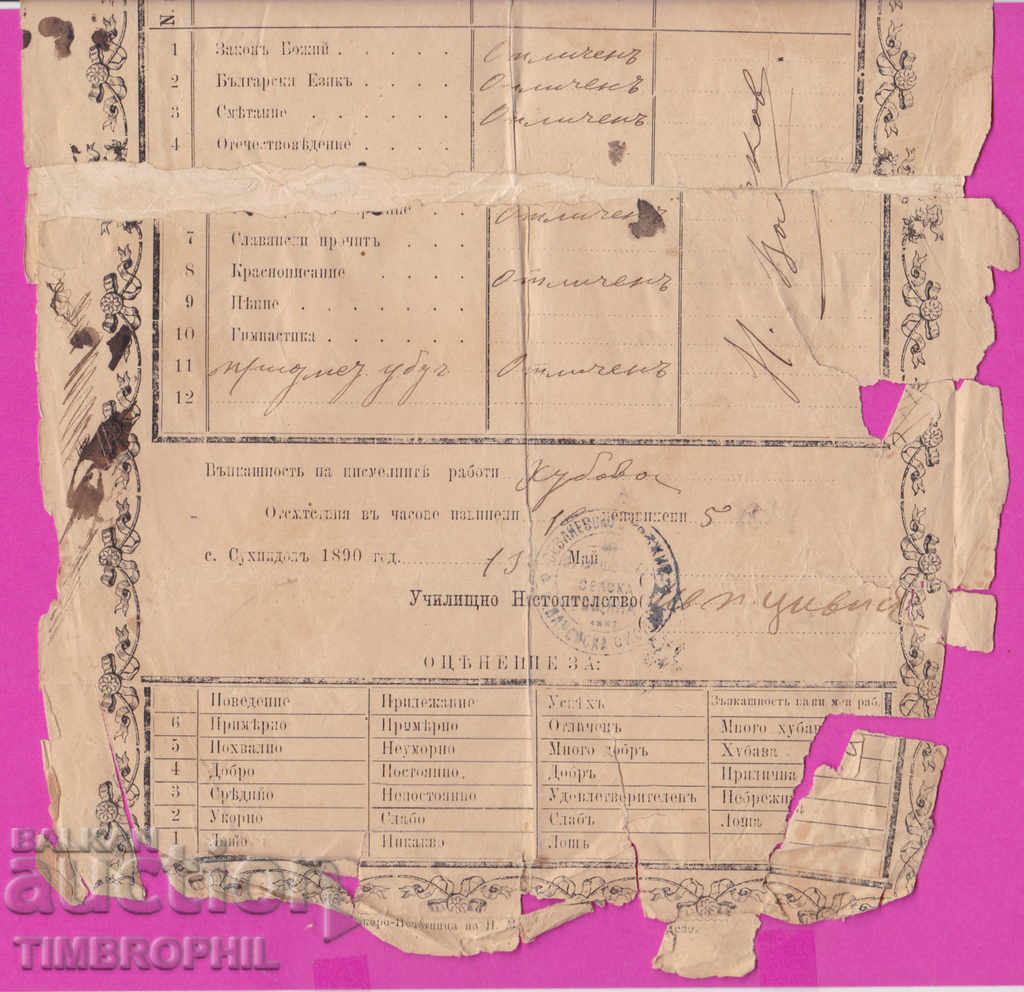 N.
1 Законъ Божий . . . . Отличенъ
2 Български Езикъ . . . . Отличенъ
3 Смѣтание . . . . . Отличенъ
4 Отечествовѣдение . . . .
Отличенъ
7 Славянски прочитъ . . .
8 Краснописание . . . . Отличенъ
9 Пѣние . . . . . . .
10 Гимнастика . . . . . .
11 Отличенъ
12
Вънкашность на писмениитѣ работи Хубаво
Отсѫтствия въ часове извинени неизвинени 5
с. Сухиндолъ 1890 год. Май
Училищно Настоятелство
ОЦѢНЕНИЕ ЗА:
Поведение Прилежание Успѣхъ Вънкашность на писмен раб.
6 Примѣрно Примѣрно Отличенъ Много хубав
5 Похвално Неуморно Много добръ Хубава
4 Добро Постоянно Добръ Прилична
3 Срѣдньо Непостоянно Удовлетворителенъ Небрежн
2 Укорно Слабо Слабъ Лоша
1 Лошо Никакво Лошъ
коро-Печатница на П.
BALKAN
auction
TIMBROPHIL